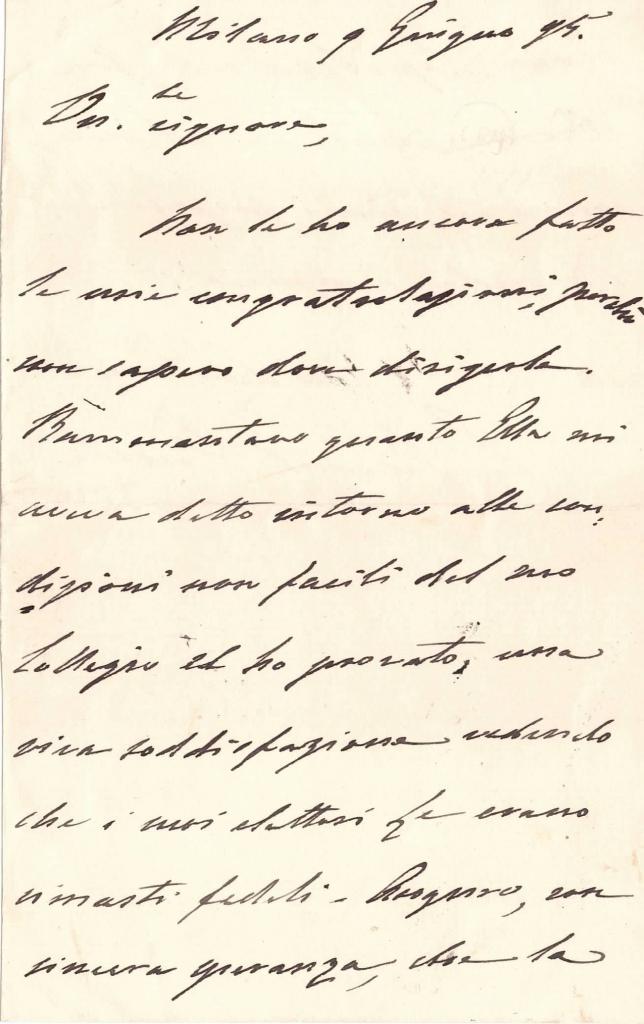 Milano 9 Giugno 95.
signore,
Non le ho ancora fatto
le mie congratulazioni, perchè
non sapevo dove dirigerle.
Rammentavo quanto Ella mi
aveva detto intorno alle con-
dizioni non facili del suo
Collegio ed ho provato, una
viva soddisfazione vedendo
che i suoi elettori Le erano
rimasti fedeli - Auguro, con
sincera speranza, che la